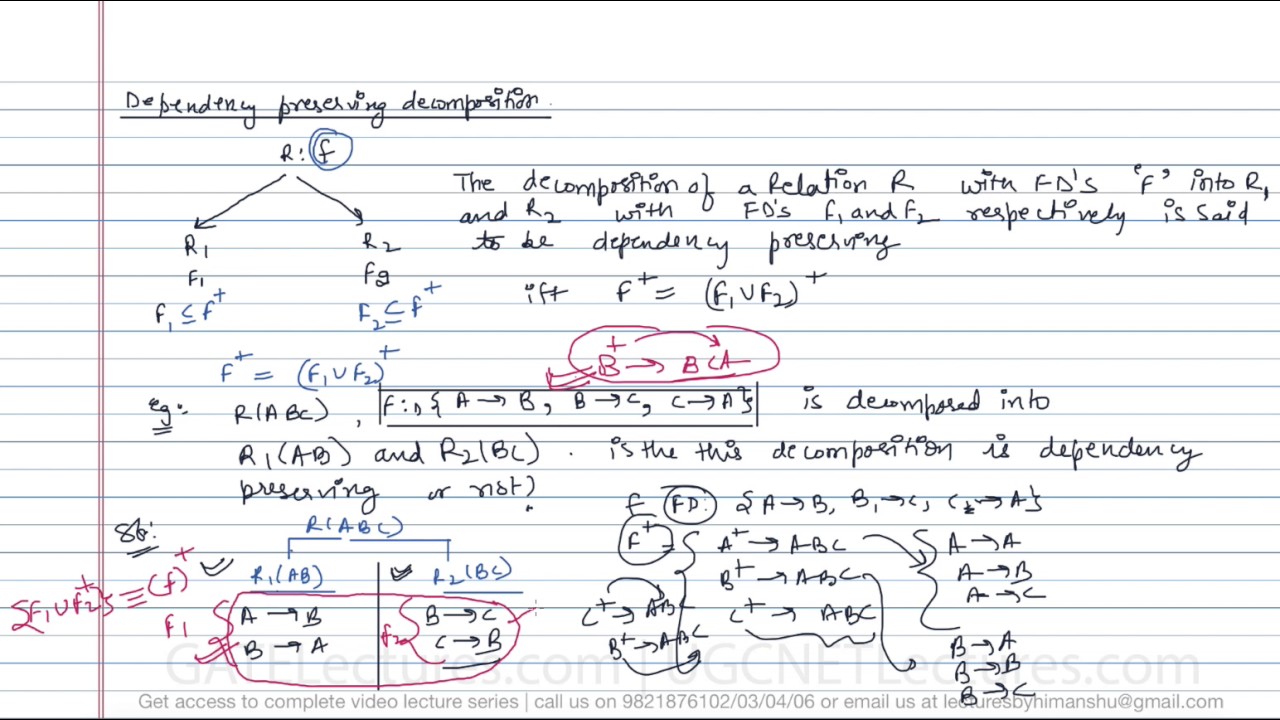 Dependency preserving decomposition.
R: f
The decomposition of a Relation R with FD's 'F' into R₁
and R₂ with FD's F₁ and F₂ respectively is said
to be dependency preserving
R₁ R₂
F₁ F₂
F₁ ⊆ F⁺ F₂ ⊆ F⁺
iff F⁺ = (F₁ ∪ F₂)⁺
B⁺ → BCA
F⁺ = (F₁ ∪ F₂)⁺
eg: R(ABC), F: { A → B, B → C, C → A} is decomposed into
R₁(AB) and R₂(BC). is the this decomposition is dependency
preserving or not?
f FD: {A → B, B → C, C → A}
Sol:
R(ABC)
R₁(AB) R₂(BC)
{F₁ ∪ F₂}⁺ ≡ (f)⁺
F₁ A → B
B → A
F₂ B → C
C → B
F⁺ = { A⁺ → ABC
B⁺ → ABC
C⁺ → ABC
C⁺ → ABC
B⁺ → ABC
A → A
A → B
A → C
B → A
B → B
B → C
GATELectures.com | UGCNETLectures.com
Get access to complete video lecture series | call us on 9821876102/03/04/06 or email us at lecturesbyhimanshu@gmail.com